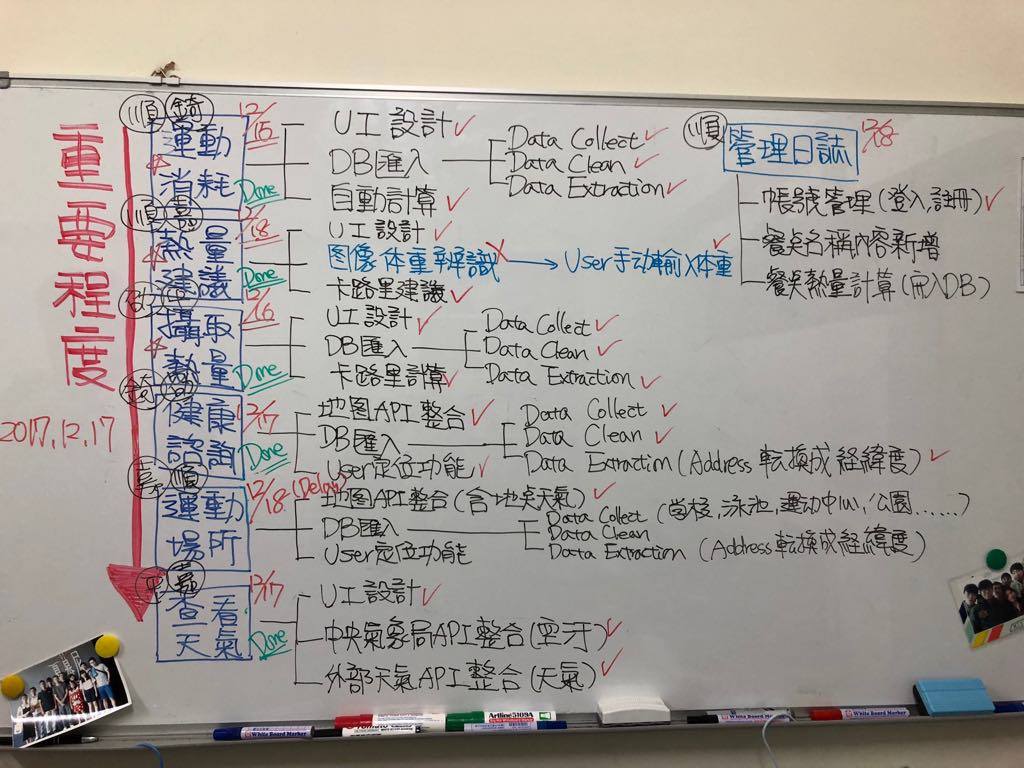 重要程度
2017.12.17
順 錡
運動
消耗
12/15
Done
UI設計✓
DB匯入
Data Collect✓
Data Clean✓
Data Extraction✓
自動計算✓
順
熱量
建議
12/18
Done
UI設計✓
图像体重辨識✗ → User手动輸入体重✓
卡路里建議✓
攝取
熱量
12/16
Done
UI設計✓
DB匯入✓
Data Collect✓
Data Clean✓
Data Extraction✓
卡路里計算✓
錡
健康
諮詢
12/17
Done
地图API整合✓
DB匯入
Data Collect✓
Data Clean✓
Data Extraction(Address転換成経緯度)✓
User定位功能✓
順
運動
場所
12/18(Delay)
地图API整合(含地点天氣)✓
DB匯入
Data Collect(学校,泳池,運动中心,公園......)
Data Clean
Data Extraction(Address転換成経緯度)
User定位功能
查看
天氣
12/17
Done
UI設計✓
中央氣象局API整合(空汙)✓
外部天氣API整合(天氣)✓
順
管理日誌
12/18
帳號管理(登入,註冊)✓
餐点名稱內容新增
餐点熱量計算(用入DB)
White Board Marker
Artline 5109A
White Board Marker
White Board Marker